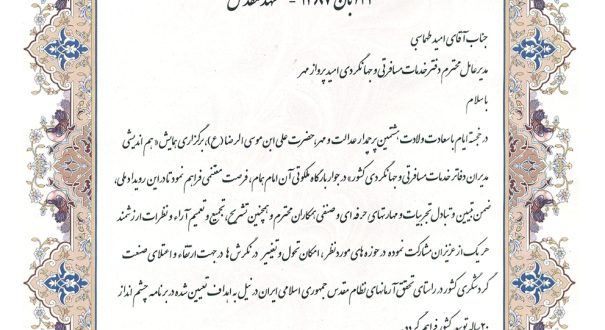 ۲۲ آبان ۱۳۸۷ - مشهد مقدس
جناب آقای امید طهماسبی
مدیرعامل محترم دفتر خدمات مسافرتی و جهانگردی امید پرواز مهر
باسلام
در خجسته ایام باسعادت ولادت، هشتمین پرچمدار عدالت و مهر، حضرت علی ابن موسی الرضا (ع)، برگزاری همایش «هم اندیشی
مدیران دفاتر خدمات مسافرتی و جهانگردی کشور» در جوار بارگاه ملکوتی آن امام همام، فرصت مغتنمی فراهم نمود تا در این رویداد ملی،
ضمن تبیین و تبادل تجربیات و مهارتهای حرفه ای و صنفی همکاران محترم و همچنین تشریح، تجمیع و تعمیم آراء و نظرات ارزشمند
هر یک از عزیزان مشارکت نموده در حوزه های مورد نظر، امکان تحول و تغییر در نگرش ها در جهت ارتقاء و اعتلای صنعت
گردشگری کشور در راستای تحقق آرمانهای نظام مقدس جمهوری اسلامی ایران در نیل به اهداف تعیین شده در برنامه چشم انداز
۲۰ ساله توسعه کشور فراهم گردد.